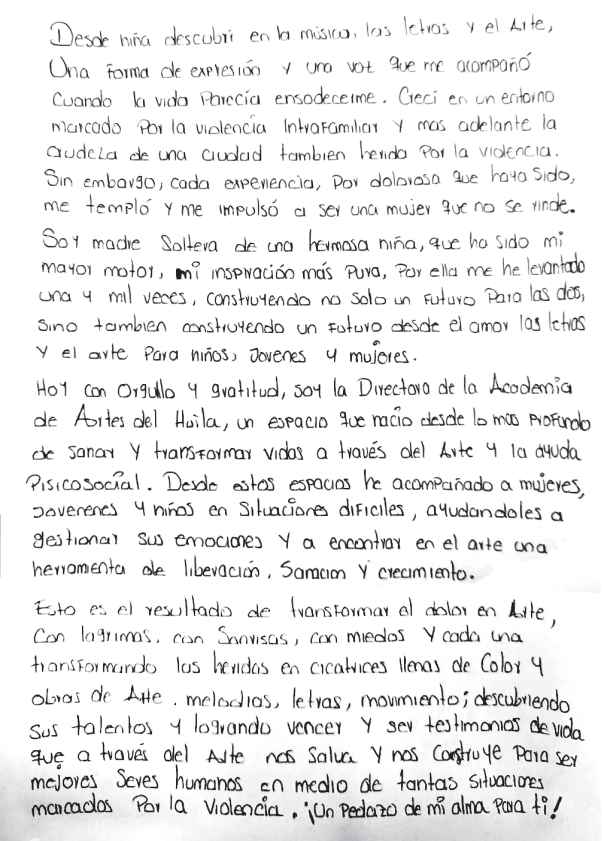 Desde niña descubrí en la música, las letras y el Arte,
Una forma de expresión y una voz que me acompañó
Cuando la vida Parecía ensodecerme. Crecí en un entorno
marcado Por la violencia Intrafamiliar y mas adelante la
crudeza de una ciudad tambien herida Por la violencia.
Sin embargo, cada experiencia, Por dolorosa que haya sido,
me templó y me impulsó a ser una mujer que no se rinde.
Soy madre Soltera de una hermosa niña, que ha sido mi
mayor motor, mi inspiración más Pura, Por ella me he levantado
una y mil veces, construyendo no solo un Futuro Para las dos,
Sino tambien construyendo un Futuro desde el amor las letras
y el arte Para niños, Jovenes y mujeres.
Hoy con Orgullo y gratitud, soy la Directora de la Academia
de Artes del Huila, un espacio que nacio desde lo mas Profundo
de sanar y transformar vidas a través del Arte y la ayuda
Pisicosocial. Desde estos espacios he acompañado a mujeres,
Joverenes y niños en Situaciones dificiles, ayudandoles a
gestionar sus emociones y a encontrar en el arte una
herramienta de liberación, Sanacion y crecimiento.
Esto es el resultado de transformar el dolor en Arte,
Con lagrimas, con Sonrisas, con miedos y cada una
transformando las heridas en cicatrices llenas de Color y
obras de Arte. melodias, letras, movimiento; descubriendo
sus talentos y logrando vencer y ser testimonios de vida
que a través del Arte nos Salva y nos Construye Para ser
mejores Seres humanos en medio de tantas situaciones
marcados Por la Violencia. ¡Un Pedazo de mi alma Para ti!